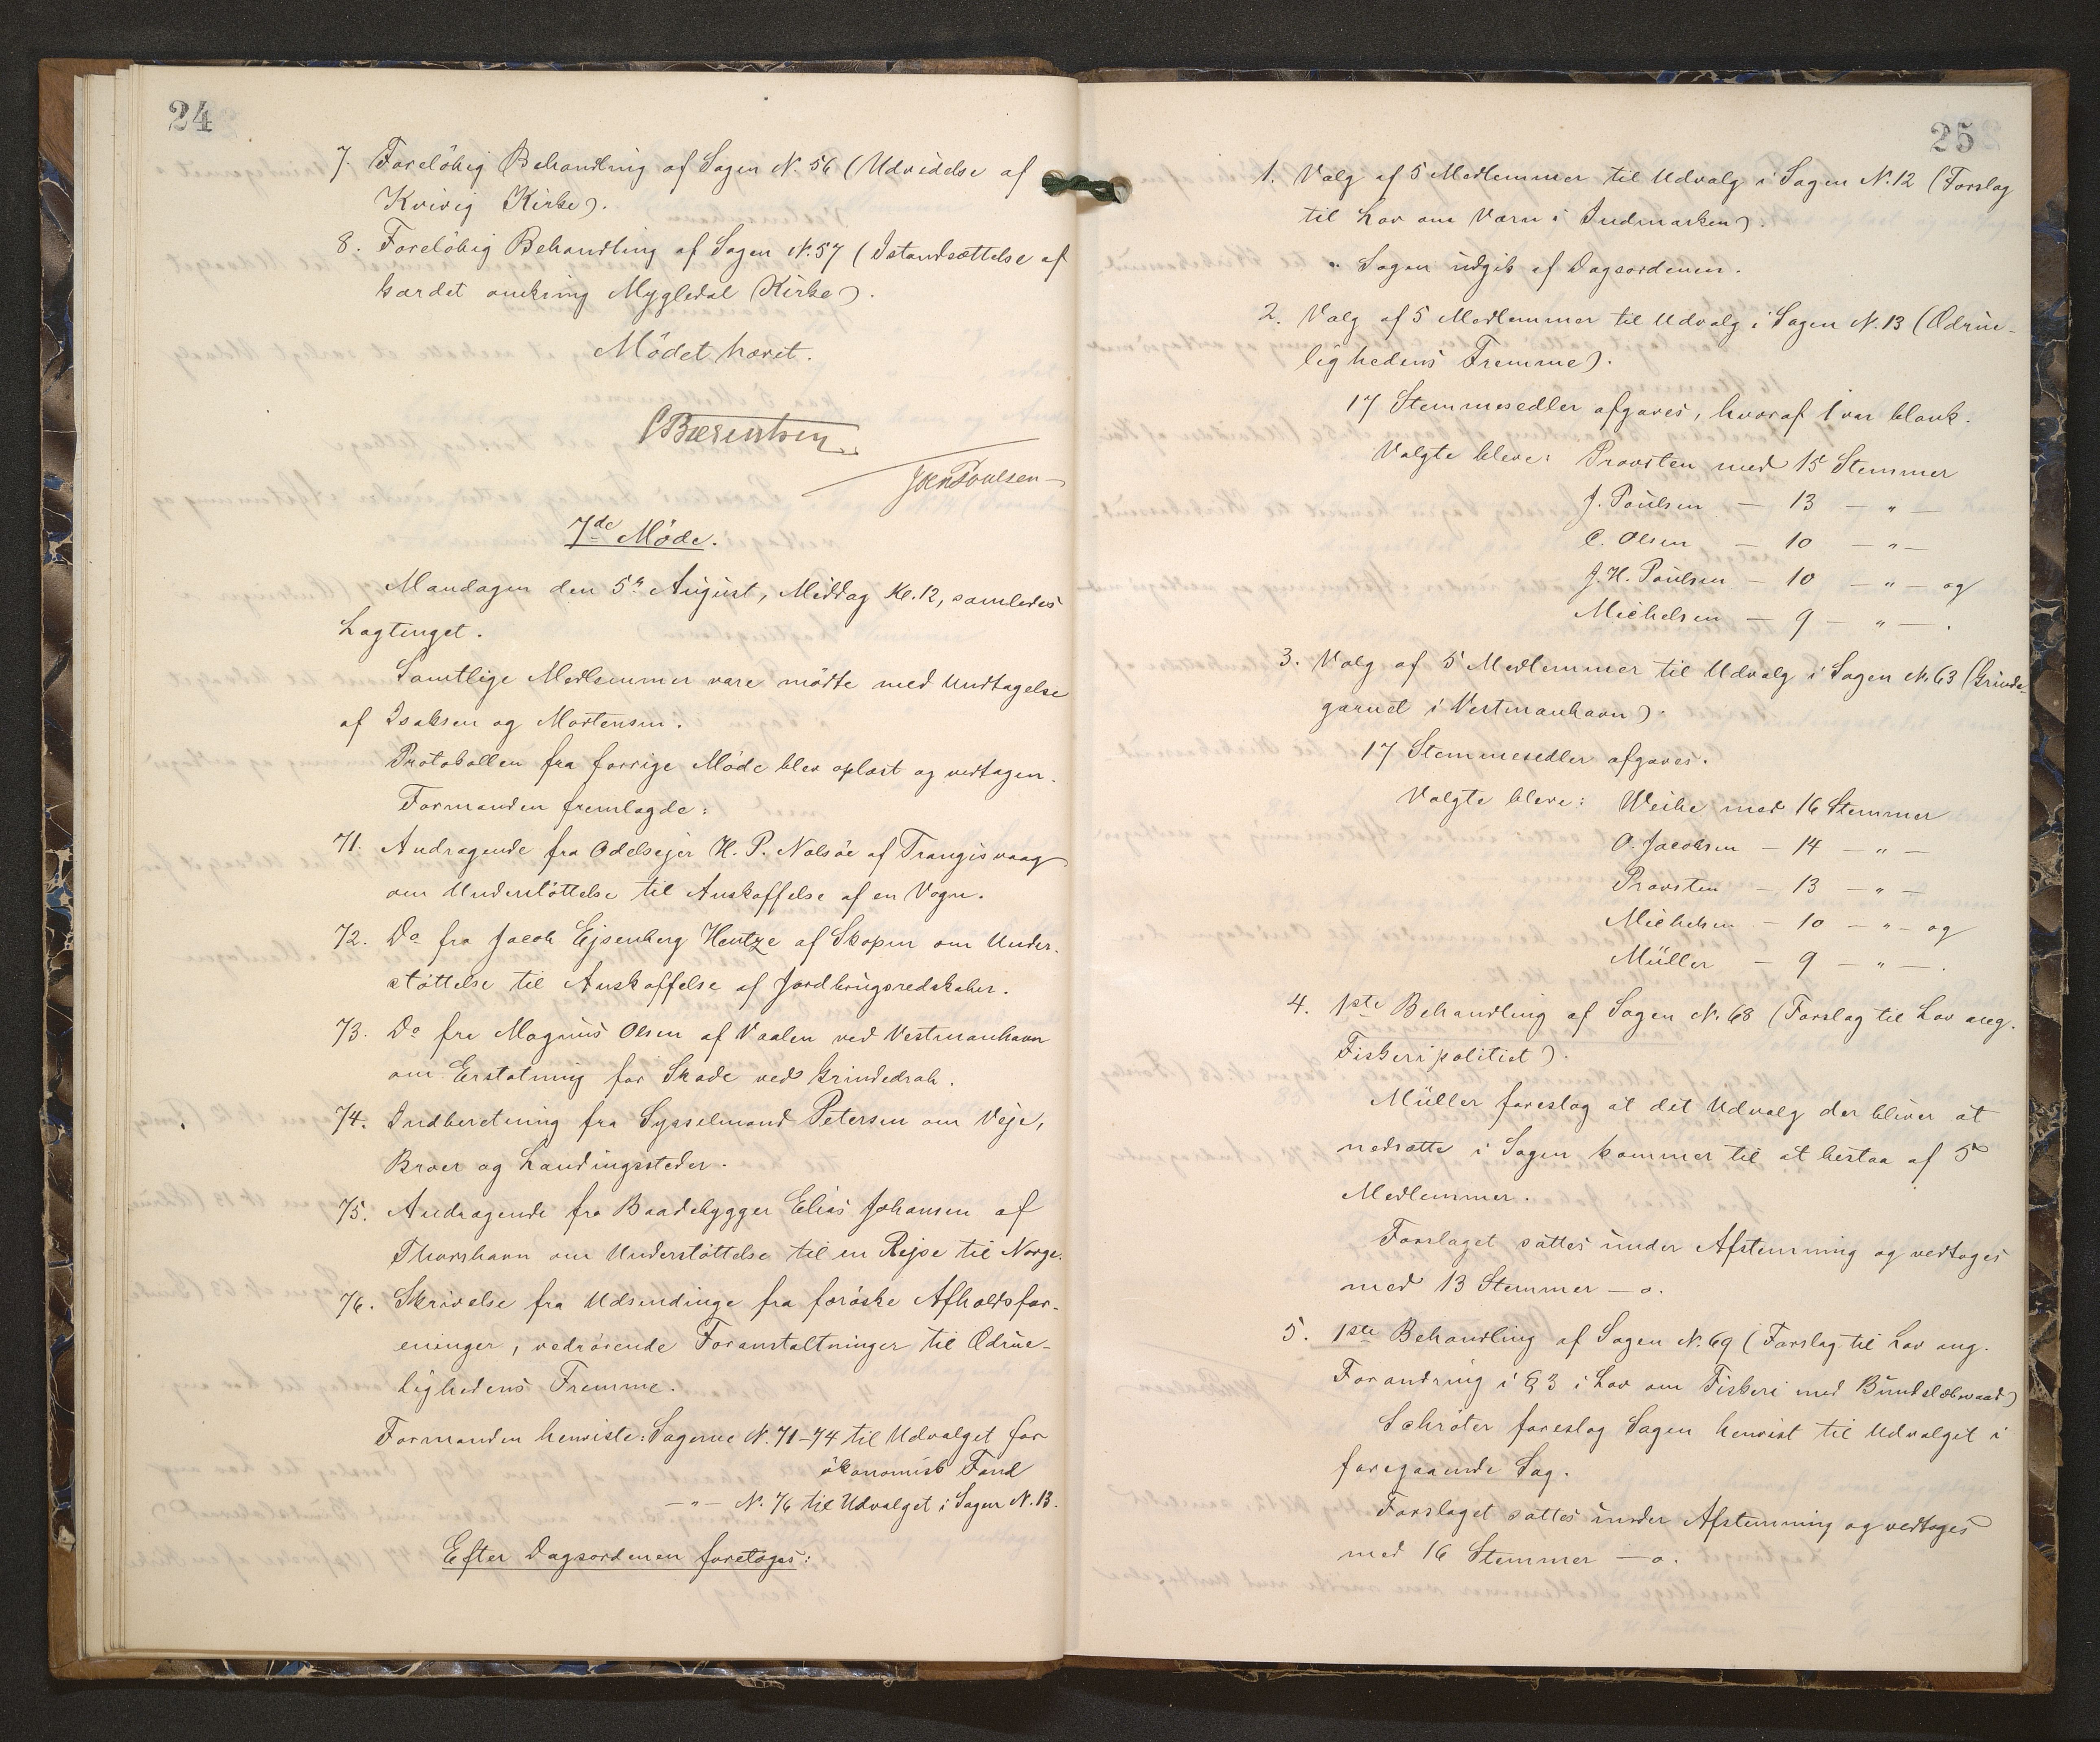 24
7. Foreløbig Behandling af Sagen N. 56 (Udvidelse af
Kvivig Kirke).
8. Foreløbig Behandling af Sagen N. 57 (Istandsættelse af
Gærdet omkring Mygledal Kirke).
Mödet hævet.
CBærentsen
JoenPoulsen
7de Møde.
Mandagen den 5te August, Middag Kl. 12, samledes
Lagtinget.
Samtlige Medlemmer vare mödte med Undtagelse
af Isaksen og Mortensen.
Protokollen fra forrige Møde blev oplæst og vedtagen.
Formanden fremlagde:
71. Andragende fra Odelsejer H. P. Nolsøe af Trangisvaag
om Understöttelse til Anskaffelse af en Vogn.
72. Do fra Jacob Ejsenberg Hentze af Skopen om Under-
støttelse til Anskaffelse af Jordbrugsredskaber.
73. Do fra Magnus Olsen af Vaalen ved Vestmanhavn
om Erstatning for Skade ved Grindedrab.
74. Indberetning fra Sysselmand Petersen om Veje,
Broer og Landingssteder.
75. Andragende fra Baadebygger Elias Johansen af
Thorshavn om Understöttelse til en Rejse til Norge.
76. Skrivelse fra Udsendinge fra færöske Afholdsfor-
eninger, vedrørende Foranstaltninger til Ædrue-
lighedens Fremme.
Formanden henviste: Sagerne N. 71-74 til Udvalget for
økonomisk Fond
—"— N. 76 til Udvalget i Sagen N. 13.
Efter Dagsordenen foretoges:
25
1. Valg af 5 Medlemmer til Udvalg i Sagen N. 12 (Forslag
til Lov om Værn i Indmarken).
Sagen udgik af Dagsordenen.
2. Valg af 5 Medlemmer til Udvalg i Sagen N. 13 (Ædrue-
lighedens Fremme).
17 Stemmesedler afgaves, hvoraf 1 var blank.
Valgte bleve: Provsten med 15 Stemmer
J. Poulsen — 13 — " —
C. Olsen — 10 — " —
J. H. Poulsen — 10 — " — og
Michelsen — 9 — " — .
3. Valg af 5 Medlemmer til Udvalg i Sagen N. 63 (Grinde-
garnet i Vestmanhavn).
17 Stemmesedler afgaves.
Valgte bleve: Weihe med 16 Stemmer
O. Jacobsen — 14 — " —
Provsten — 13 — " —
Michelsen — 10 — " — og
Müller — 9 — " — .
4. 1ste Behandling af Sagen N. 68 (Forslag til Lov ang.
Fiskeripolitiet).
Müller foreslog at det Udvalg der bliver at
nedsætte i Sagen kommer til at bestaa af 5
Medlemmer.
Forslaget sattes under Afstemning og vedtoges
med 13 Stemmer — o.
5. 1ste Behandling af Sagen N. 69 (Forslag til Lov ang.
Forandring i § 3 i Lov om Fiskeri med Bundslæbevaad)
Schrøter foreslog Sagen henvist til Udvalget i
foregaaende Sag.
Forslaget sattes under Afstemning og vedtoges
med 16 Stemmer — o.